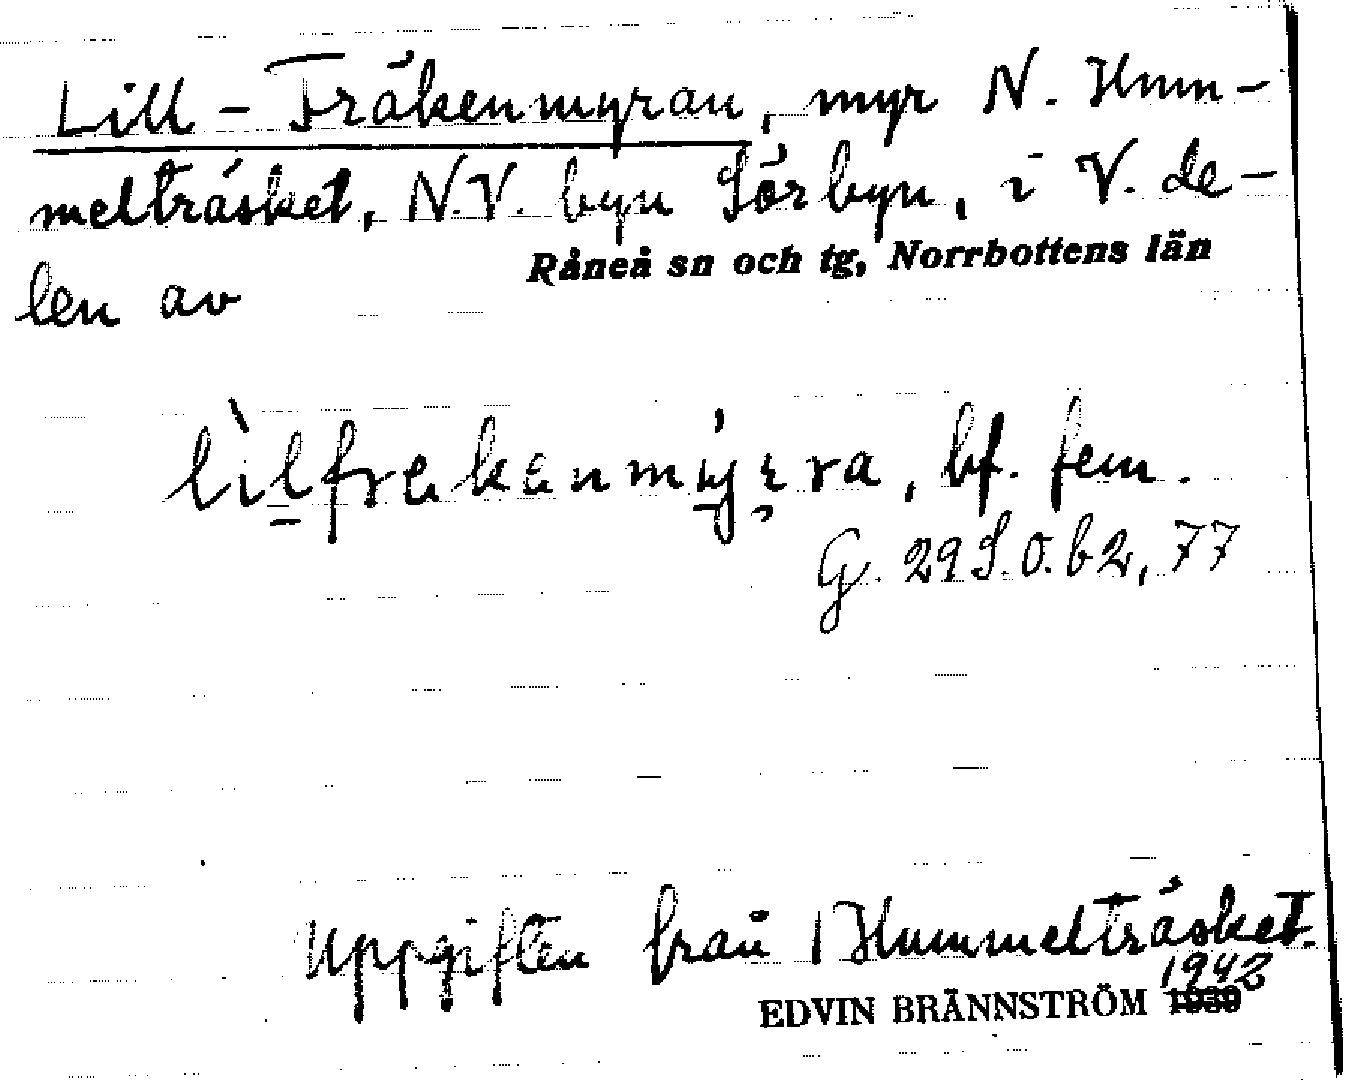 Lill-Fräkenmyran, myr N. Hum-
melträsket, N.V. byn Sörbyn, i V. de-
Råneå sn och tg, Norrbottens län
len av
lilfrekanmyrra, bf. fem.
G. 29 S.O. b2, 77
Uppgiften från Hummelträsket.
1942
EDVIN BRÄNNSTRÖM 1930